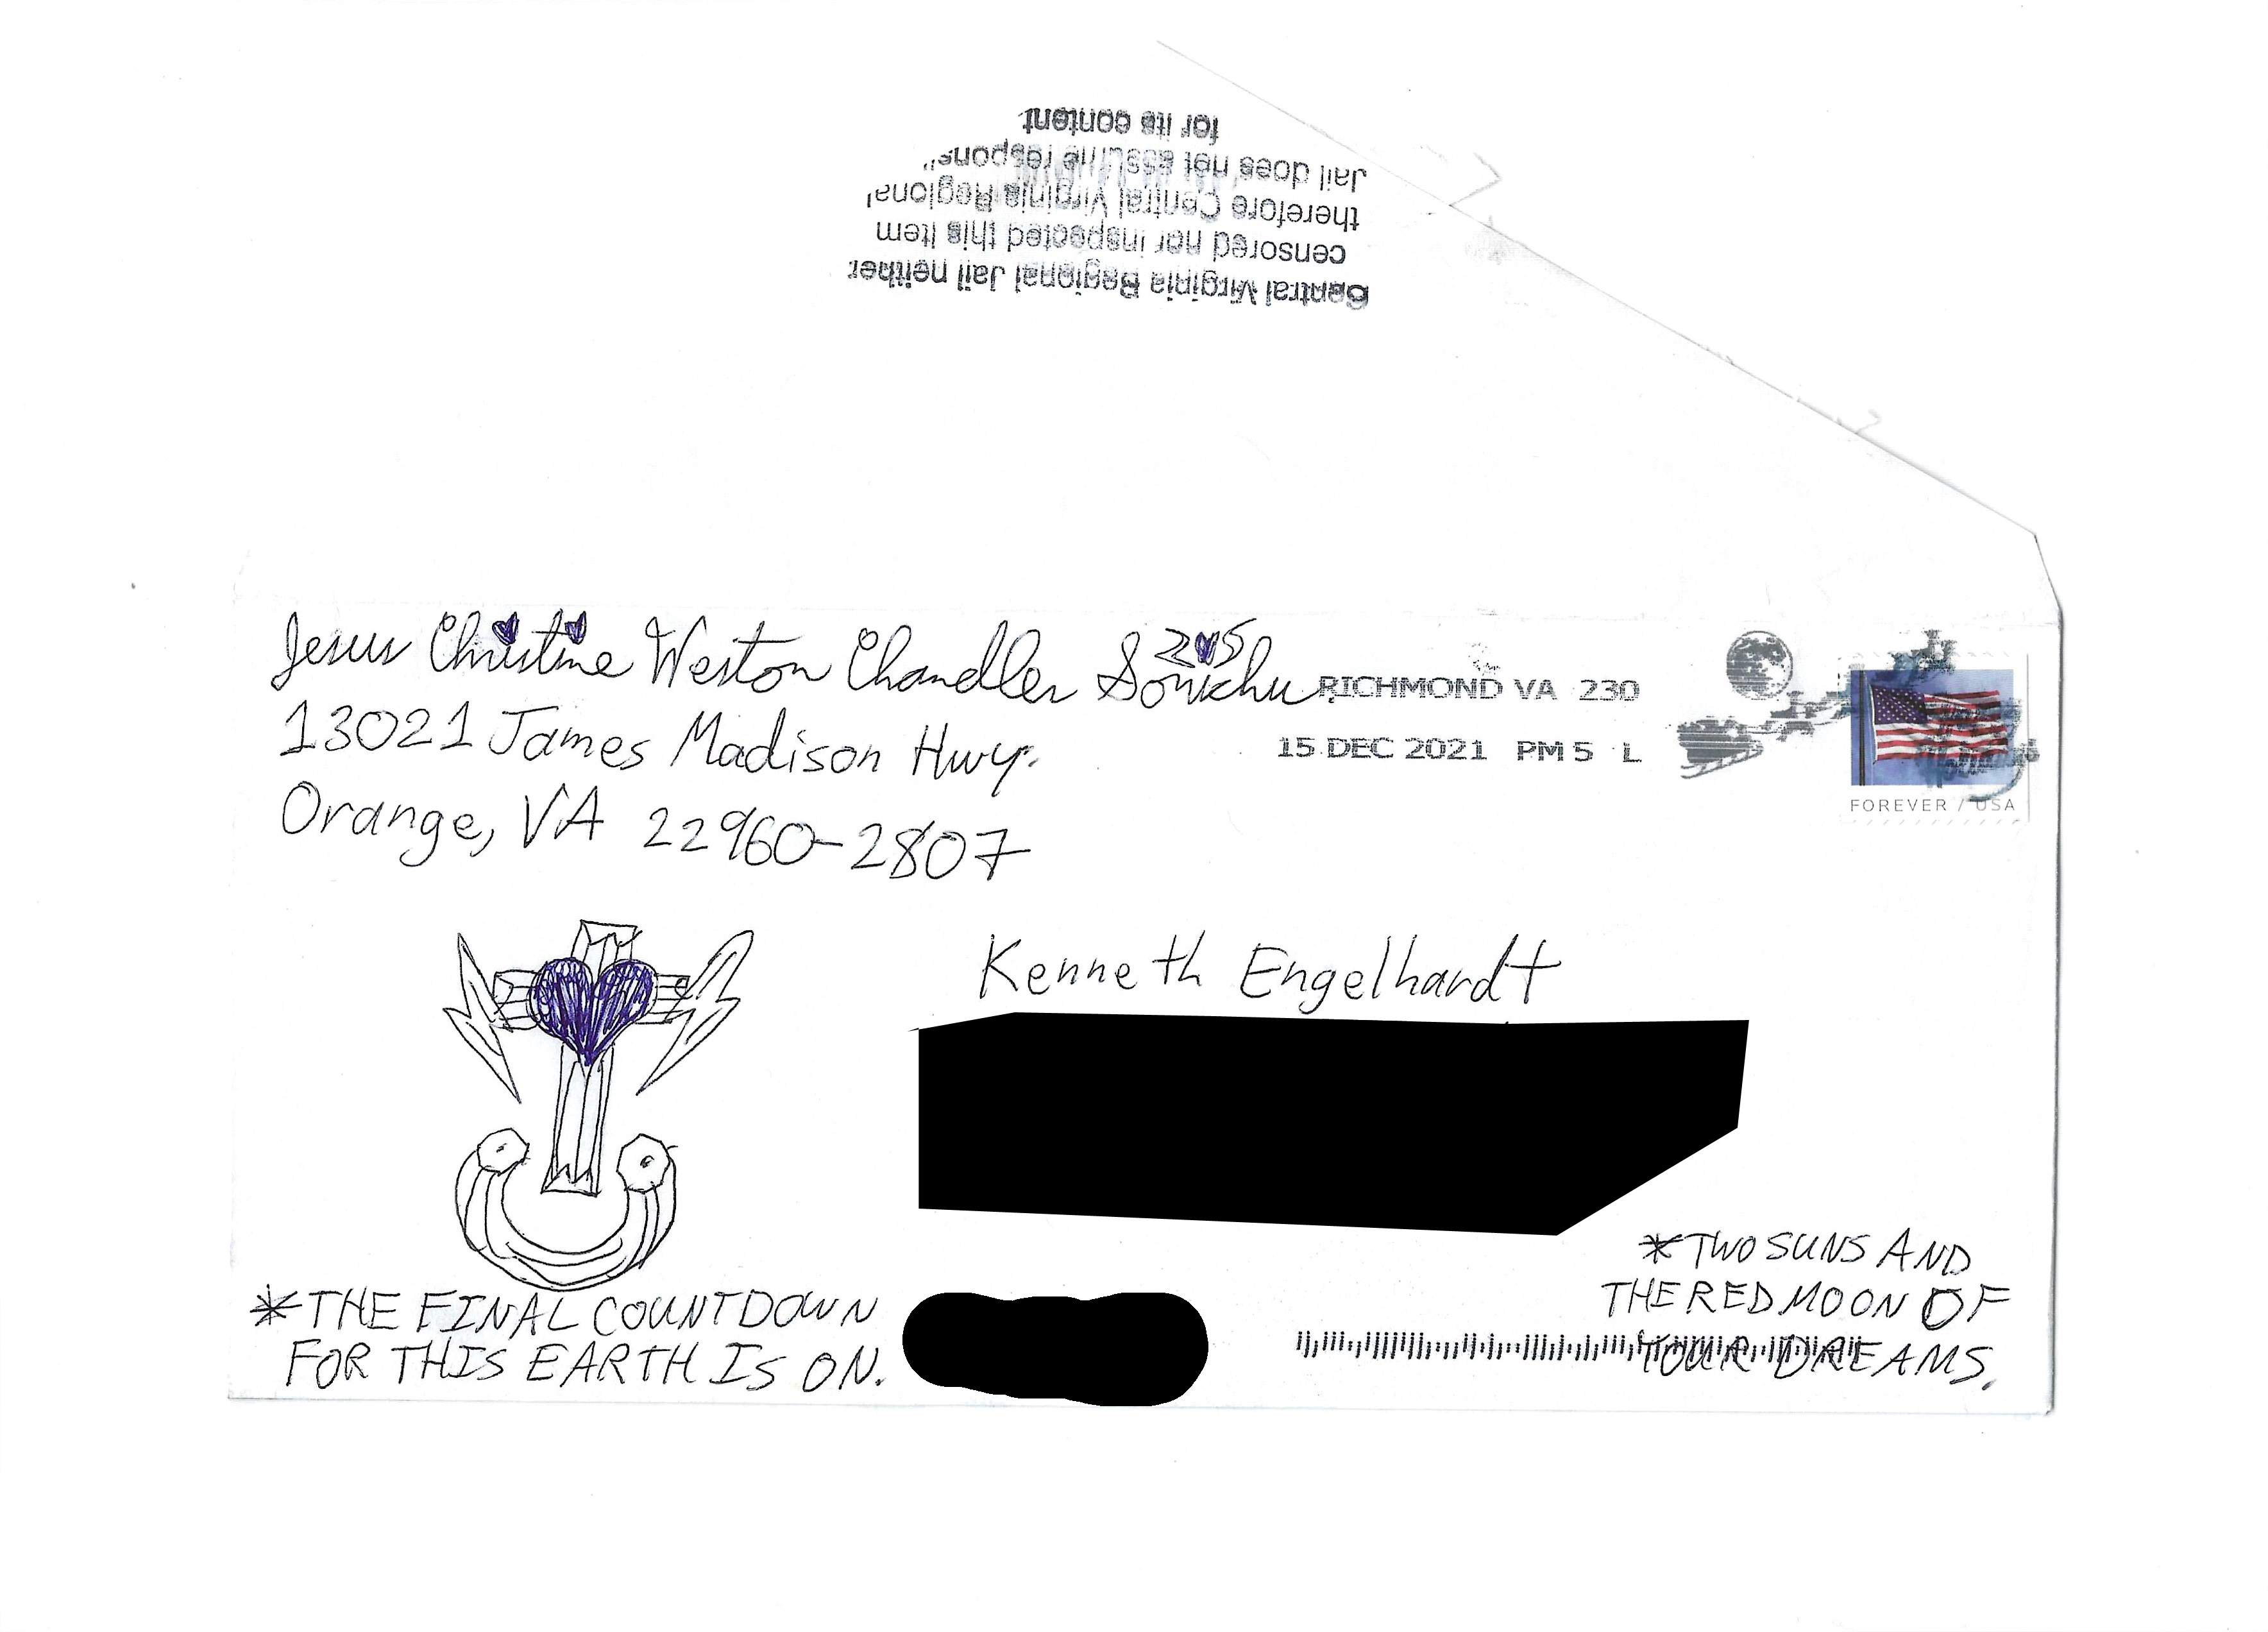 for its content
Jail does not assume respons
therefore Central Virginia Regional
censored nor inspected this item
Central Virginia Regional Jail neither
Jesus Christine Weston Chandler Sonichu
RICHMOND VA 230
13021 James Madison Hwy.
15 DEC 2021 PM 5 L
Orange, VA 22960-2807
FOREVER / USA
Kenneth Engelhardt
*TWO SUNS AND
THE RED MOON OF
YOUR DREAMS.
*THE FINAL COUNTDOWN
FOR THIS EARTH IS ON.